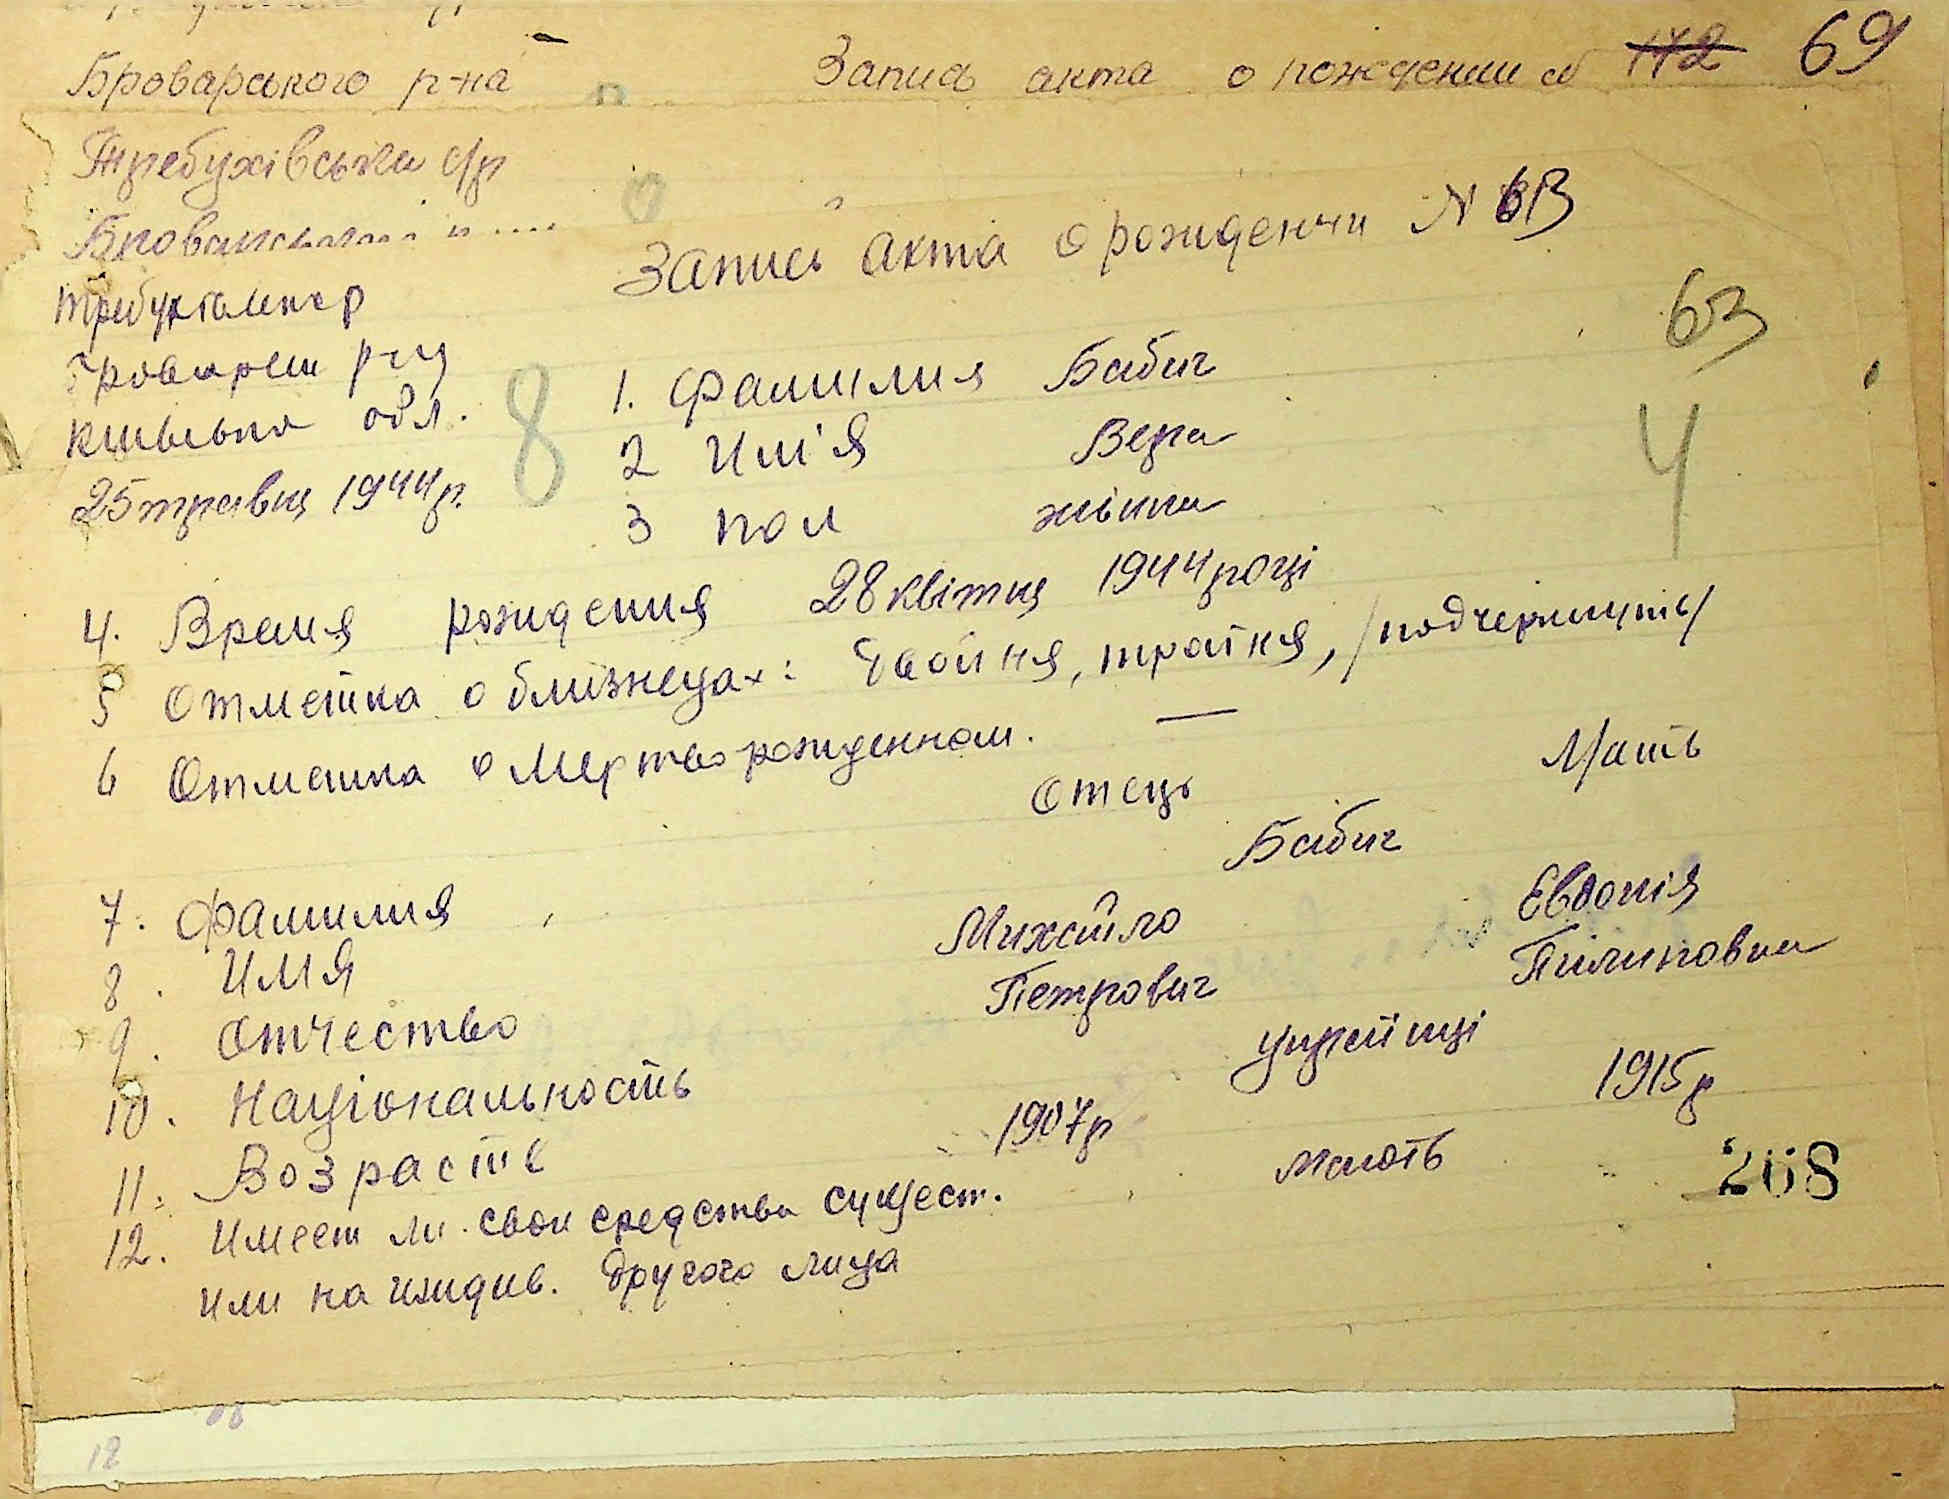 Броварського р-на Запись акта о рождении № 172 69
Требухівська с/р
Запись акта о рожденчи N 63
63
Київська обл.
25 травня 1944р.
8
4
1. Фамилия Бабич
2 Им'я Вера
3 пол жінка
4. Время рождения 28 квітня 1944 році
5 Отметка о близнецах: Двойня, тройня, /подчеркнуть/
6 Отметка о Мертворожденном. —
Отець Мать
Бабич
7. Фамилия
8. Имя Михайло Евдокія
9. Отчество Петрович Пилиповна
10. Національность українці
11. Возраств 1907р 1915р
12. Имеет ли свои средства сущест. мають
или на иждив. другого лица
268
12